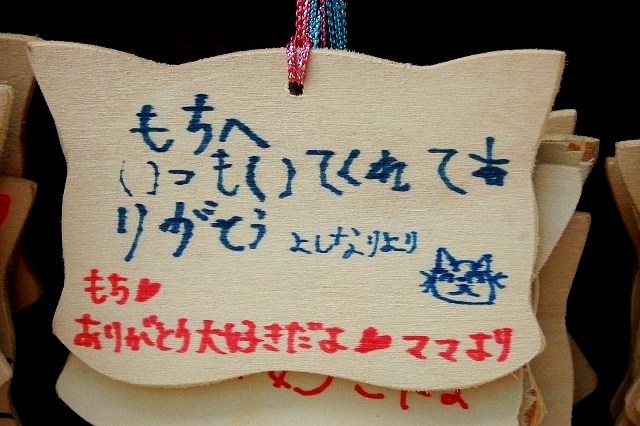 もちへ
いつもいてくれてあ
りがとう よしなりより
もち♥
ありがとう大好きだよ♥ ママより